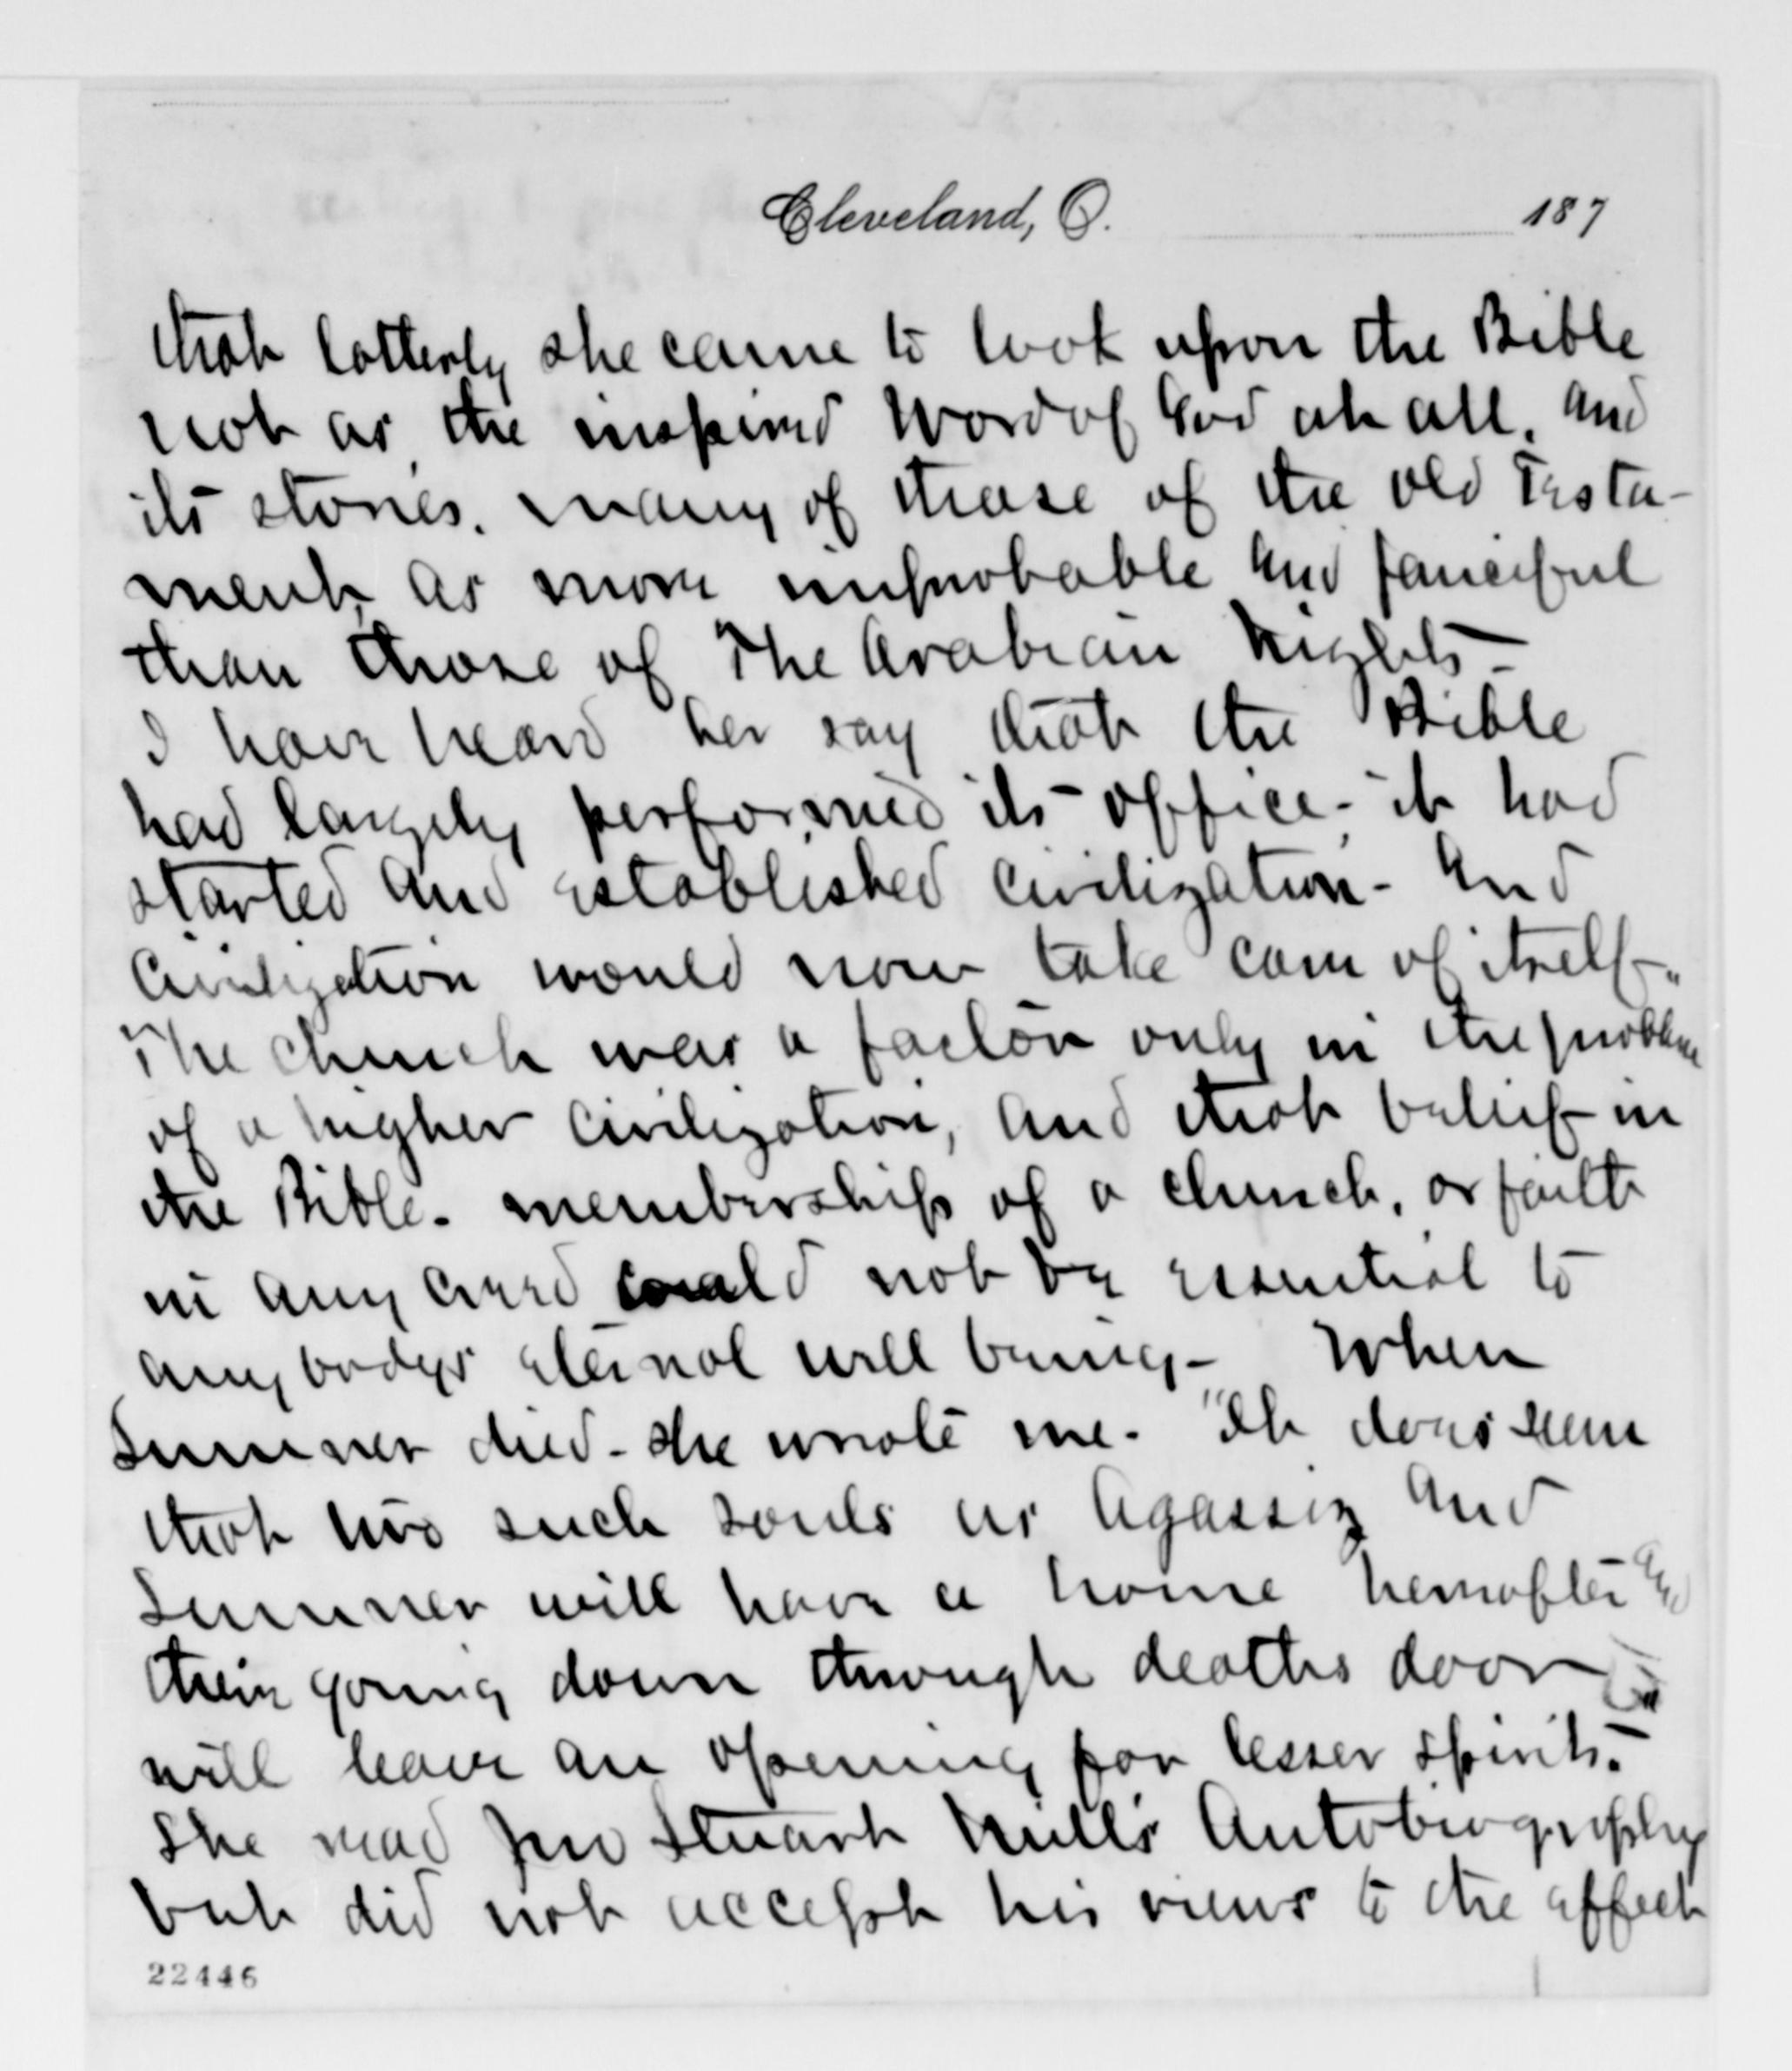 Cleveland, O. 187
that latterly she came to look upon the Bible
not as the inspired Word of God at all. and
its stories. many of those of the old Testa-
ment, as more improbable and fanciful
than those of The Arabian Nights-
I have heard her say that the Bible
had largely performed its office-; it had
started and established civilization- And
Civilization would now take care of itself-.
The church was a factor only in the problem
of a higher civilization, and that belief in
the Bible. membership of a church, or faith
in any creed could not be essential to
any bodys eternal well being- When
Sumner died- she wrote me. "It does seem
that two such souls as Agassiz and
Sumner will have a home hereafter and
their going down through deaths door
will leave an opening for lesser spirits."
She read Jno Stuart Mill's Autobiography
but did not accept his views to the effect
22446